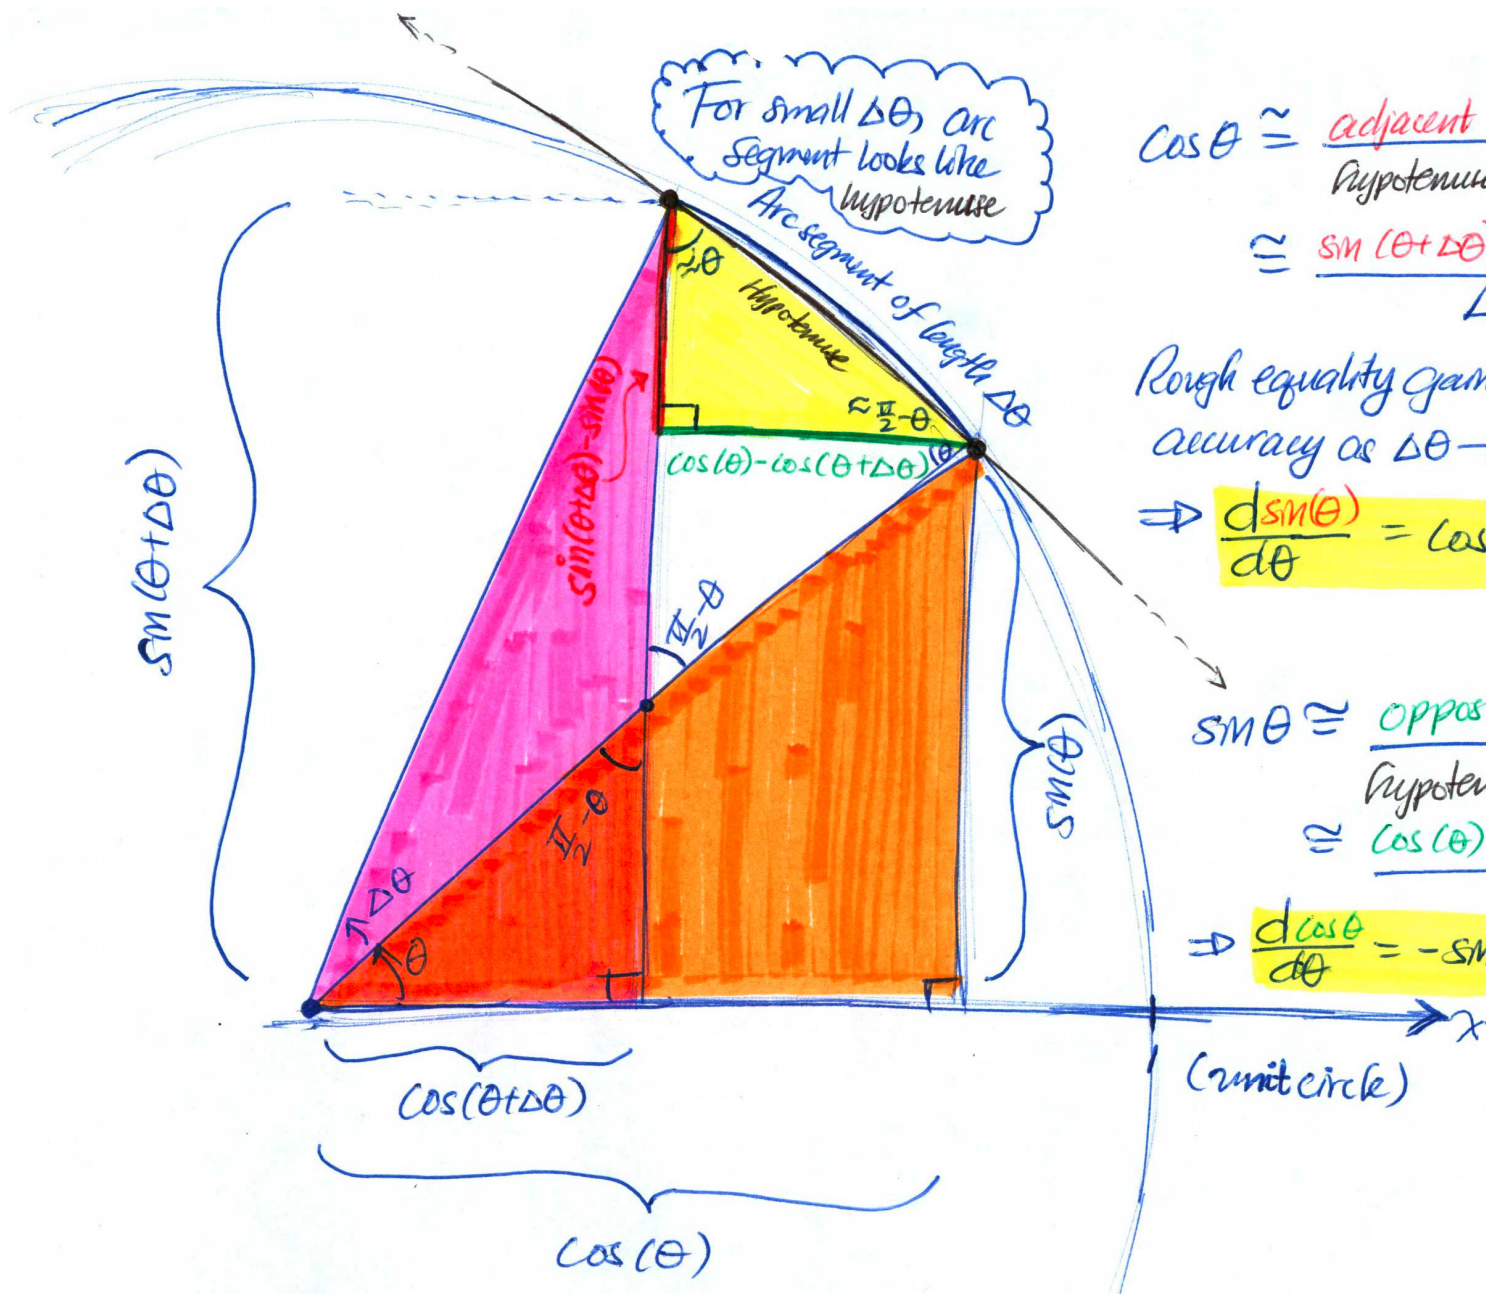 For small Δθ, arc
segment looks like
hypotenuse
Arc segment of length Δθ
Hypotenuse
≈θ
≈ π/2 -θ
θ
cos(θ)-cos(θ+Δθ)
sin(θ+Δθ)-sin(θ)
sin(θ+Δθ)
π/2 -θ
π/2 -θ
sin(θ)
Δθ
θ
cos(θ+Δθ)
cos(θ)
(unit circle)
x
cos θ ≅ adjacent
hypotenuse
≅ sin (θ+Δθ)
Rough equality gain
accuracy as Δθ→
⇒ d sin(θ)
dθ
= cos
sin θ ≅ oppos
hypoten
≅ cos(θ)
⇒ d cosθ
dθ
= -sin